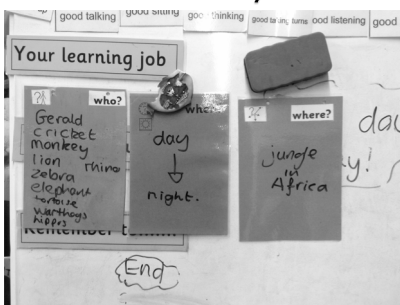 good talking
good sitting
good thinking
good taking turns
good listening
good
Your learning job
who?
Gerald
cricket
monkey
lion rhino
zebra
elephant
tortoise
warthogs
hippos
day
night.
where?
jungle
in
Africa
day
y!
End